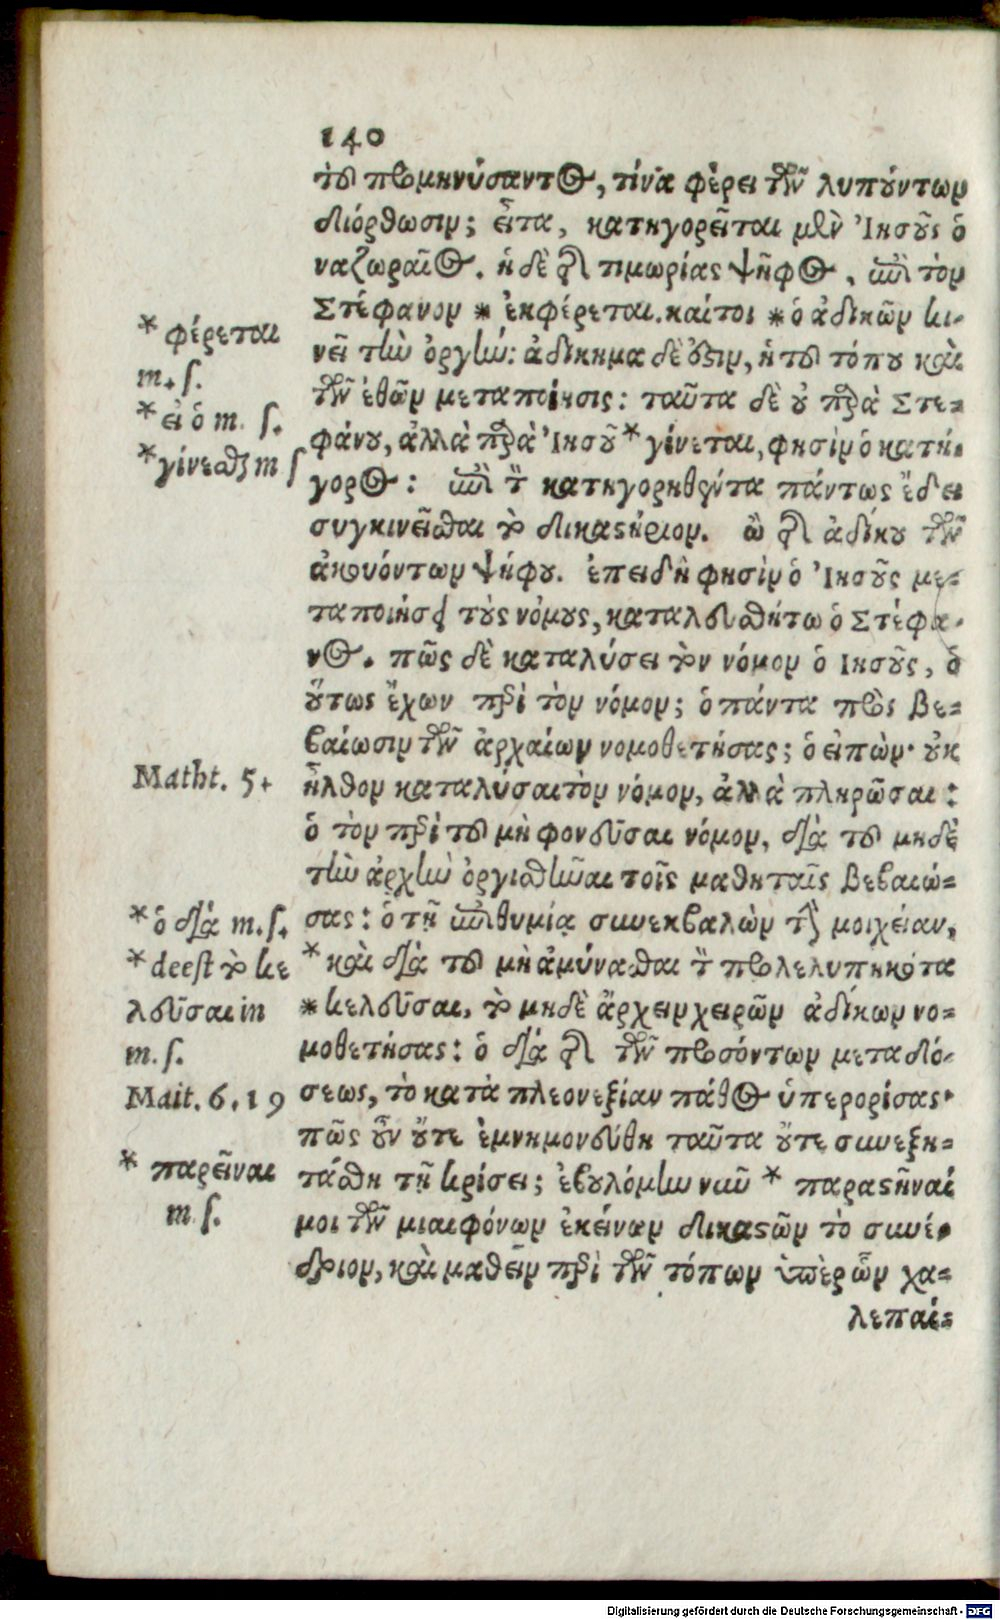 140
τοῦ προμηνύσαντος, τίνα φέρει τῶν λυπούντων
διόρθωσιν; εἶτα, κατηγορεῖται μὲν Ἰησοῦς ὁ
ναζωραῖος. ἡ δὲ τῆς τιμωρίας ψῆφος, ἐπὶ τὸν
Στέφανον * ἐκφέρεται. καίτοι * ὁ ἀδικῶν κι-
* φέρεται
νεῖ τὴν ὀργήν: ἀδίκημα δέ ἐστιν, ἡ τοῦ τόπου καὶ
m. s.
τῶν ἐθῶν μεταποίησις: ταῦτα δὲ οὐ παρὰ Στε-
* εἰ ὁ m. s.
φάνου, ἀλλὰ παρὰ Ἰησοῦ * γίνεται, φησὶν ὁ κατή-
* γίνεσθαι m s
γορος: ἐπὶ τὸν κατηγορηθέντα πάντως ἔδει
συγκινεῖσθαι τὸ δικαστήριον. ὢ τῆς ἀδίκου τῶν
ἀκουόντων ψήφου. ἐπειδὴ φησὶν ὁ Ἰησοῦς με-
ταποιήσει τοὺς νόμους, καταλευσθήτω ὁ Στέφα-
νος. πῶς δὲ καταλύσει τὸν νόμον ὁ Ιησοῦς, ὁ
οὕτως ἔχων περὶ τὸν νόμον; ὁ πάντα πρὸς βε-
βαίωσιν τῶν ἀρχαίων νομοθετήσας; ὁ εἰπών· οὐκ
Matht. 5.
ἦλθον καταλύσαι τὸν νόμον, ἀλλὰ πληρῶσαι:
ὁ τὸν περὶ τοῦ μὴ φονεῦσαι νόμον, διὰ τοῦ μηδὲ
τὴν ἀρχὴν ὀργισθῆναι τοῖς μαθηταῖς βεβαιώ-
* ὁ διὰ m. s.
σας: ὁ τῇ ἐπιθυμίᾳ συνεκβαλὼν τὴν μοιχείαν,
* deest τὸ κε
* καὶ διὰ τοῦ μὴ ἀμύνασθαι τὸν προλελυπηκότα
λεῦσαι in
* κελεῦσαι, τὸ μηδὲ ἄρχειν χειρῶν ἀδίκων νο-
m. s.
μοθετήσας: ὁ διὰ τῆς τῶν προσόντων μεταδό-
Mait. 6. 19
σεως, τὸ κατὰ πλεονεξίαν πάθος ὑπερορίσας·
πῶς οὖν οὔτε ἐμνημονεύθη ταῦτα οὔτε συνεξη-
* παρεῖναι
τάσθη τῇ κρίσει; ἐβουλόμην νῦν * παραστῆναί
m. s.
μοι τῶν μιαιφόνων ἐκείνων δικαστῶν τὸ συνέ-
δριον, καὶ μαθεῖν περὶ τῶν τόπων ὑπὲρ ὧν χα-
λεπαί-
Digitalisierung gefördert durch die Deutsche Forschungsgemeinschaft - DFG